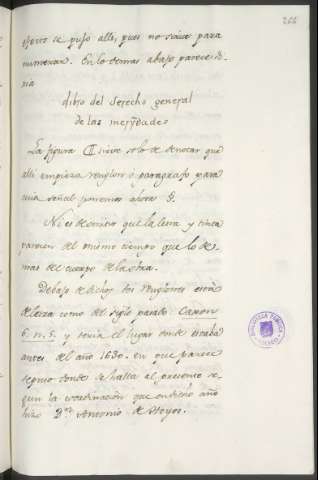 266
se puso alli, pues no sirve para
numerar. En lo demas abajo parece d.
ria
libro del derecho general
de las merindades
La figura ₵ sirve solo de denotar que
alli empieza renglon o paragrafo para
cuia señal ponemos ahora §.
Ni es de omitir que la letra y tinta
parecen del mismo tiempo que lo de
mas del cuerpo de la obra.
Debajo de dichos dos renglones está
de letra como del siglo pasado Caxon
6. n. 5. y seria el lugar donde estaba
antes del año 1630. en que parece
siguio donde se halla al presente se
gun la coordinacion que en dicho año
hizo Dn. Antonio de Hoyos.
BIBLIOTECA PUBLICA
TOLEDO